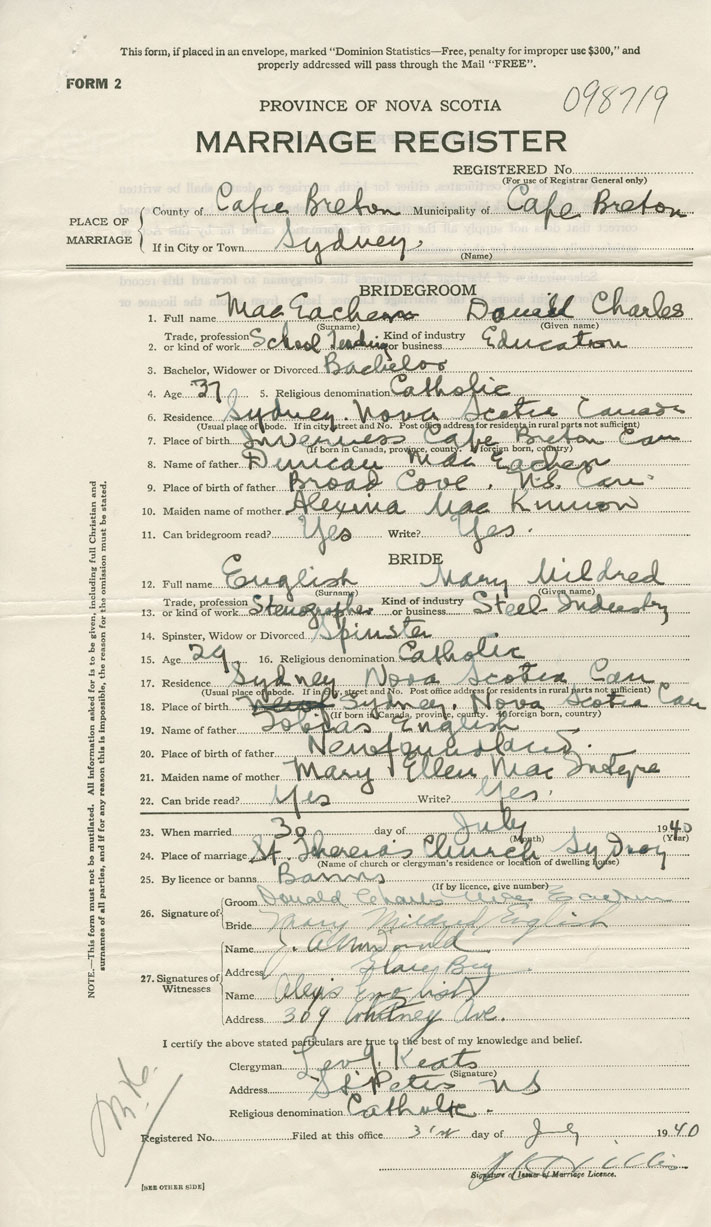 This form, if placed in an envelope, marked "Dominion Statistics—Free, penalty for improper use $300," and
properly addressed will pass through the Mail "FREE".
FORM 2
098719
PROVINCE OF NOVA SCOTIA
MARRIAGE REGISTER
REGISTERED No.
(For use of Registrar General only)
PLACE OF MARRIAGE
County of Cape Breton Municipality of Cape Breton
If in City or Town Sydney.
(Name)
BRIDEGROOM
1. Full name MacEachern Donald Charles
(Surname) (Given name)
2. Trade, profession or kind of work School Teaching Kind of industry or business Education
3. Bachelor, Widower or Divorced Bachelor
4. Age 37 5. Religious denomination Catholic
6. Residence Sydney. Nova Scotia Canada
(Usual place of abode. If in city street and No. Post office address for residents in rural parts not sufficient)
7. Place of birth Inverness Cape Breton Can
(If born in Canada, province, county. If foreign born, country)
8. Name of father Duncan MacEachern
9. Place of birth of father Broad Cove, N.S. Can.
10. Maiden name of mother Alexina MacKinnon
11. Can bridegroom read? Yes Write? Yes.
BRIDE
12. Full name English Mary Mildred
(Surname) (Given name)
13. Trade, profession or kind of work Stenographer Kind of industry or business Steel Industry
14. Spinster, Widow or Divorced Spinster
15. Age 29 16. Religious denomination Catholic
17. Residence Sydney Nova Scotia Can
(Usual place of abode. If in City, street and No. Post office address for residents in rural parts not sufficient)
18. Place of birth Sydney. Nova Scotia Can
(If born in Canada, province, county. If foreign born, country)
19. Name of father Tobias English
20. Place of father Newfoundland.
21. Maiden name of mother Mary Ellen MacIntyre
22. Can bride read? Yes Write? Yes.
23. When married 30 day of July 1940
(Month) (Year)
24. Place of marriage St. Theresa's Church Sydney
(Name of church or clergyman's residence or location of dwelling house)
25. By licence or banns Banns
(If by licence, give number)
26. Signature of
Groom Donald Charles MacEachern
Bride Mary Mildred English
27. Signatures of Witnesses
Name J. A. MacDonald
Address Glace Bay
Name Alexis English
Address 309 Whitney Ave.
I certify the above stated particulars are true to the best of my knowledge and belief.
Clergyman Leo J. Keats
(Signature)
Address St. Peters NS
Religious denomination Catholic.
Registered No. Filed at this office 31st day of July 1940
Signature of Issuer of Marriage Licence.
[SEE OTHER SIDE]
NOTE.—This form must not be mutilated. All information asked for is to be given, including full Christian and
surnames of all parties, and if for any reason this is impossible, the reason for the omission must be stated.